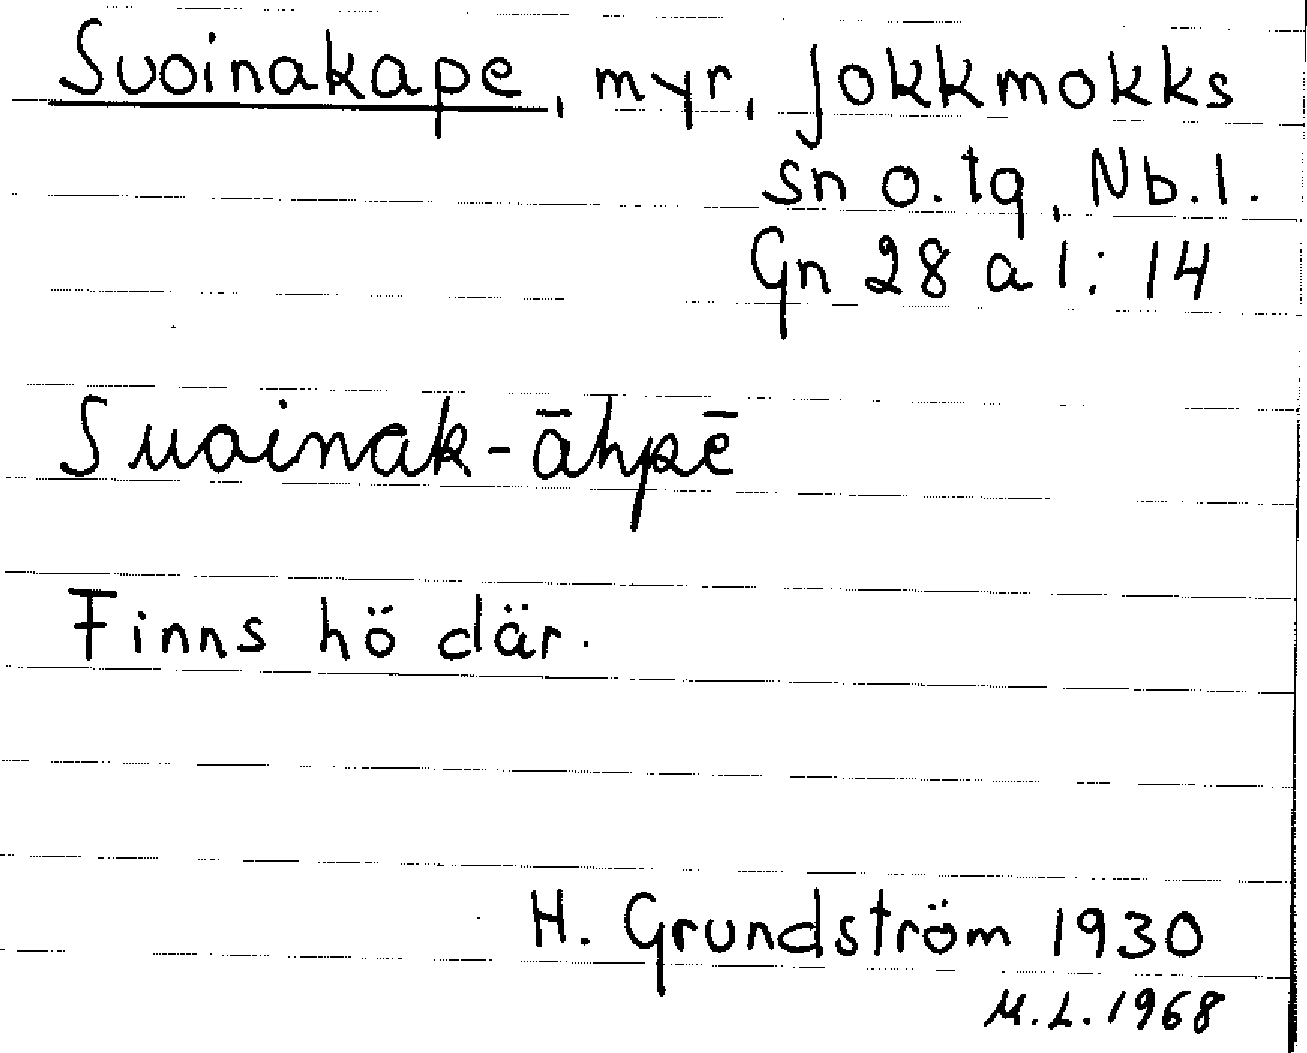 Suoinakape, myr, Jokkmokks
sn o. tg, Nb. l.
Gn 28 a l: 14
Suoinak-āhpē
Finns hö där.
H. Grundström 1930
M.L. 1968